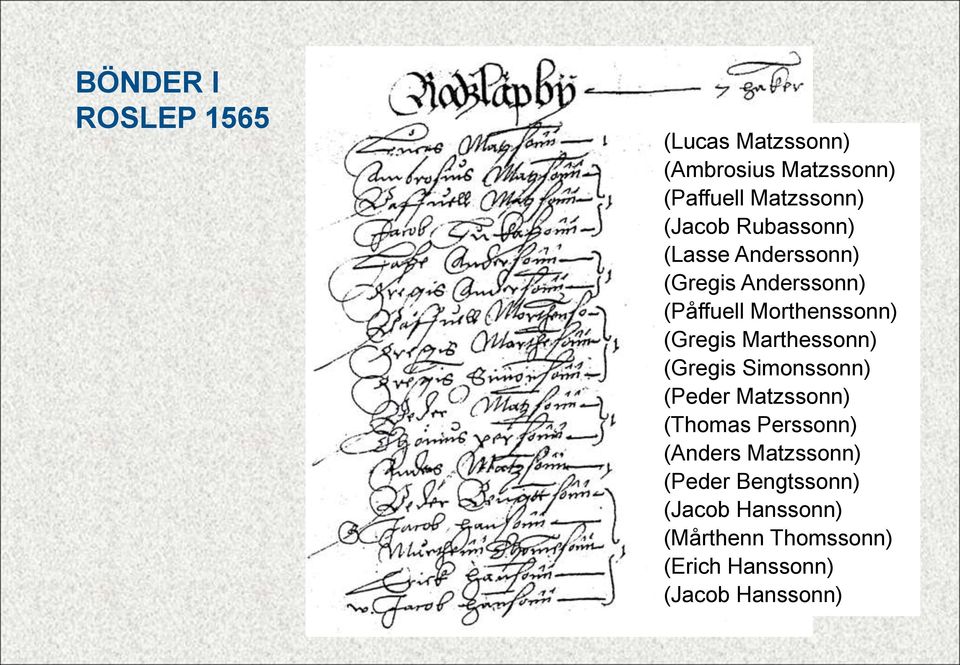 BÖNDER I
ROSLEP 1565
Rodzläpbÿ haker
Lucas Matzsonn
Ambrosius Matzsonn
Paffuell Matzsonn
Jacob
Lasse Andersonn
Gregis Andersonn
Påffuell Morthenson
Gregis Marthesonn
Gregis Simonsonn
Peder Matzsonn
Thomas personn
Anders Matzsonn
Peder Bengtsonn
Jacob hansonn
Mårthenn Thomesonn
Erick hansonn
Jacob hansonn
(Lucas Matzssonn)
(Ambrosius Matzssonn)
(Paffuell Matzssonn)
(Jacob Rubassonn)
(Lasse Anderssonn)
(Gregis Anderssonn)
(Påffuell Morthenssonn)
(Gregis Marthessonn)
(Gregis Simonssonn)
(Peder Matzssonn)
(Thomas Perssonn)
(Anders Matzssonn)
(Peder Bengtssonn)
(Jacob Hanssonn)
(Mårthenn Thomssonn)
(Erich Hanssonn)
(Jacob Hanssonn)